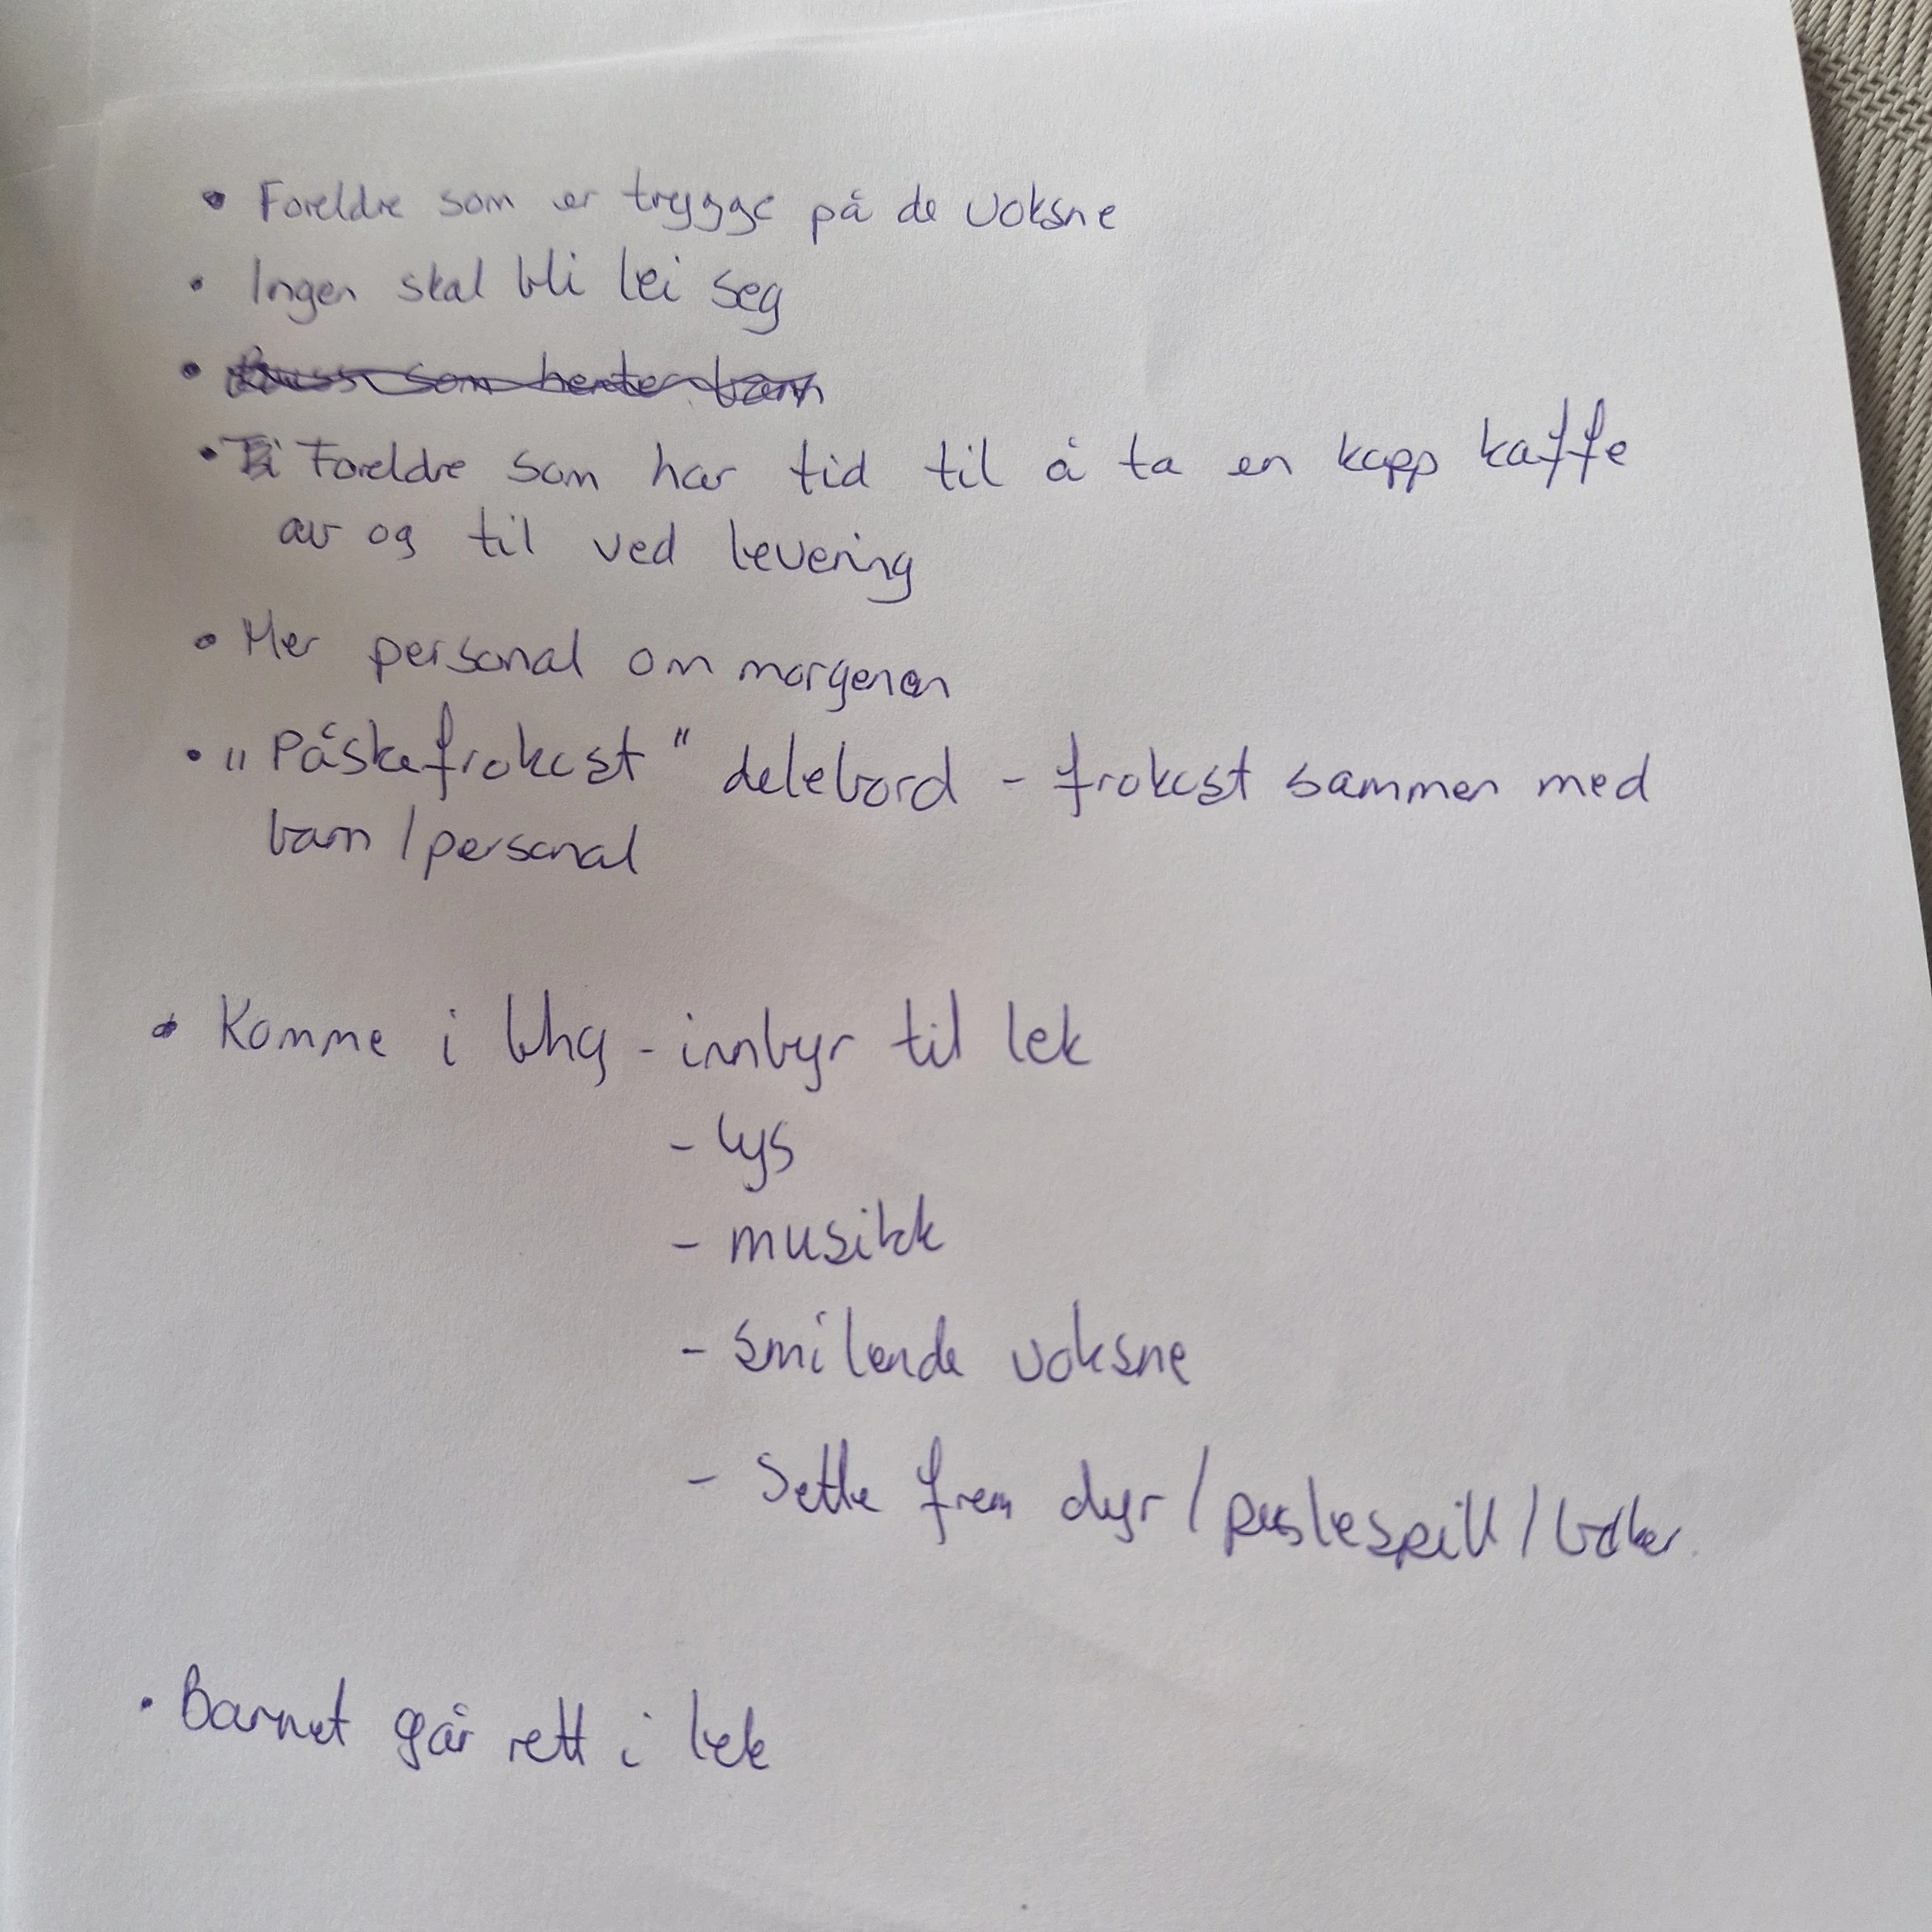 • Foreldre som er trygge på de voksne
• Ingen skal bli lei seg
• som henter barn
• Foreldre som har tid til å ta en kopp kaffe
av og til ved levering
• Mer personal om morgenen
• "Påskefrokost" delebord - frokost sammen med
barn/personal
• Komme i bhg - innbyr til lek
- lys
- musikk
- smilende voksne
- Sette frem dyr/puslespill/bøker
• Barnet går rett i lek